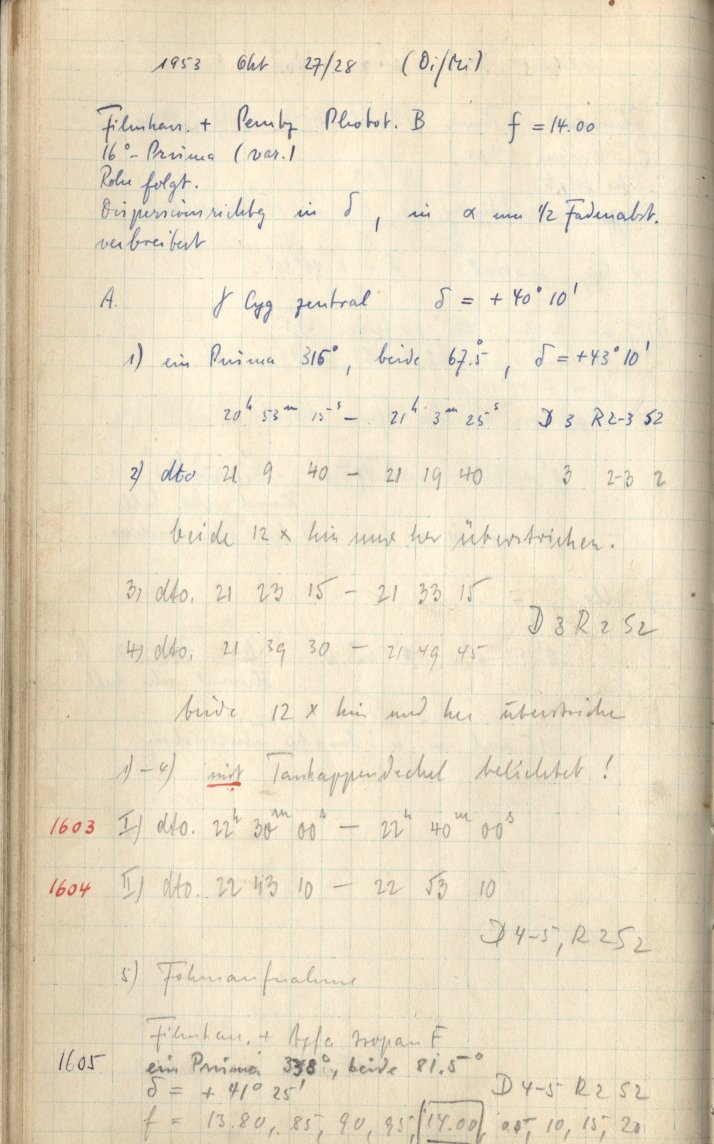 1953 Okt 27/28 (Di/Mi)
Filmkass. + Perutz Photot. B f = 14.00
16°-Prisma (var.)
Rohr folgt.
Dispersionsrichtg in δ, in α um 1/2 Fadenabst.
verbreitert
A. γ Cyg zentral δ = + 40° 10'
1) ein Prisma 316°, beide 67.5°, δ = +43° 10'
20h 53m 15s – 21h 3m 25s D 3 R 2-3 S2
2) dto 21 9 40 – 21 19 40 3 2-3 2
beide 12 x hin und her überstrichen.
3) dto. 21 23 15 – 21 33 15
D 3 R 2 S2
4) dto. 21 39 30 – 21 49 45
beide 12 x hin und her überstrichen
1) – 4) mit Taukappendeckel belichtet!
1603 I) dto. 22h 30m 00s – 22h 40m 00s
1604 II) dto. 22 43 10 – 22 53 10
D 4-5, R 2 S2
5) Fokusaufnahme
Filmkass. + Agfa Isopan F
1605 ein Prisma 338°, beide 81.5°
δ = + 41° 25' D 4-5 R2 S2
f = 13.80, 85, 90, 95, 14.00, 05, 10, 15, 20